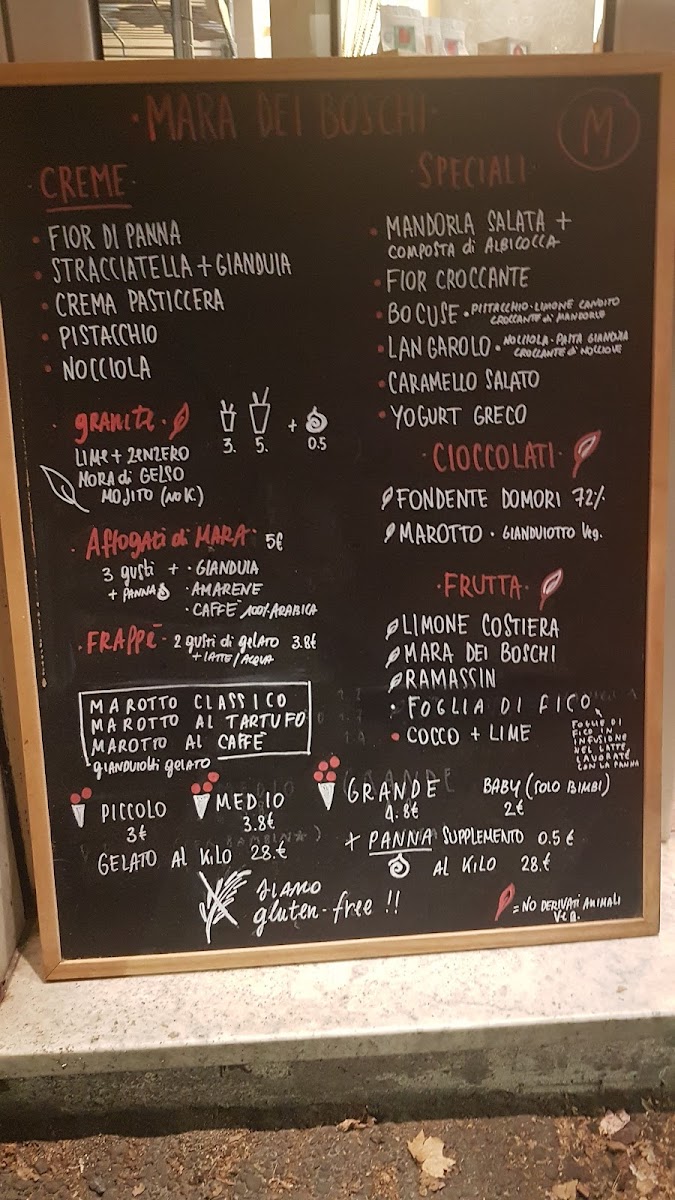 MARA DEI BOSCHI
M
CREME
FIOR DI PANNA
STRACCIATELLA + GIANDUIA
CREMA PASTICCERA
PISTACCHIO
NOCCIOLA
granite
3. 5. + 0.5
LIME + ZENZERO
MORA di GELSO
MOJITO (NO K.)
Affogati di MARA 5€
3 gusti + • GIANDUIA
+ PANNA • AMARENE
• CAFFE' 100% ARABICA
FRAPPE' - 2 gusti di gelato 3.8€
+ LATTE / ACQUA
MAROTTO CLASSICO
MAROTTO AL TARTUFO
MAROTTO AL CAFFE
gianduiotti gelato
SPECIALI
MANDORLA SALATA +
COMPOSTA di ALBICOCCA
FIOR CROCCANTE
BOCUSE • PISTACCHIO - LIMONE CANDITO
CROCCANTE di MANDORLE
LANGAROLO • NOCCIOLA - PASTA GIANDUIA
CROCCANTE di NOCCIOLE
CARAMELLO SALATO
YOGURT GRECO
CIOCCOLATI
FONDENTE DOMORI 72%
MAROTTO • GIANDUIOTTO Veg.
FRUTTA
LIMONE COSTIERA
MARA DEI BOSCHI
RAMASSIN
FOGLIA DI FICO
COCCO + LIME
FOGLIE DI
FICO IN
INFUSIONE
NEL LATTE,
LAVORATE
CON LA PANNA
PICCOLO MEDIO GRANDE BABY (SOLO BIMBI)
3€ 3.8€ 4.8€ 2€
+ PANNA SUPPLEMENTO 0.5€
GELATO AL KILO 28.€ AL KILO 28.€
SIAMO
gluten-free !!
= NO DERIVATI ANIMALI
Veg.